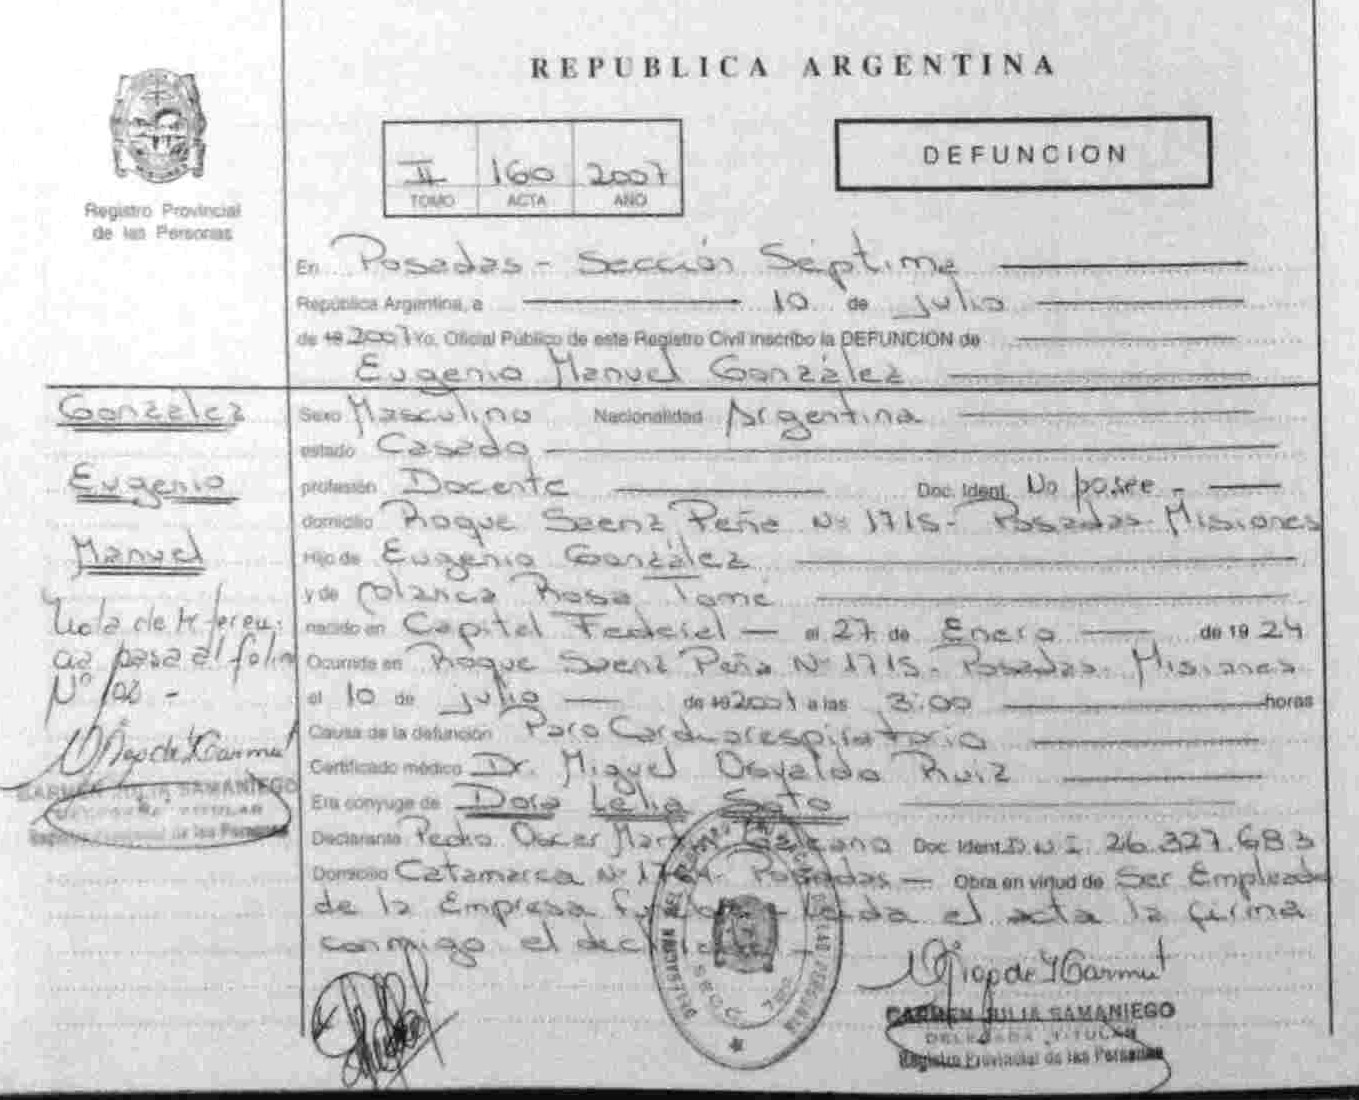 REPUBLICA ARGENTINA
Registro Provincial
de las Personas
II 160 2007
TOMO ACTA AÑO
DEFUNCION
En Posadas - Sección Séptima
República Argentina, a 10 de julio
de 19 2007 Yo, Oficial Público de este Registro Civil inscribo la DEFUNCION de
Eugenio Manuel González
González
Eugenio
Manuel
Nota de referen-
cia pasa al folio
Nº 102 -
CARMEN JULIA SAMANIEGO
DELEGADA TITULAR
Registro Provincial de las Personas
Sexo Masculino Nacionalidad Argentina
estado Casado
profesión Docente Doc. Ident. No posee -
domicilio Roque Saenz Peña Nº 1715 - Posadas - Misiones
Hijo de Eugenio González
y de Blanca Rosa Tomé
nacido en Capital Federal - el 27 de Enero de 19 24
Ocurrida en Roque Saenz Peña Nº 1715 - Posadas - Misiones
el 10 de julio de 19 2007 a las 3:00 horas
Causa de la defunción Paro Cardiorespiratorio
Certificado médico Dr. Miguel Osvaldo Ruiz
Era conyuge de Dora Lelia Soto
Declarante Pedro Oscar Doc. Ident. D.N.I. 26.327.683
Domicilio Catamarca Nº Posadas - Obra en virtud de Ser Empleado
de la Empresa Leída el acta la firma
conmigo el
CARMEN JULIA SAMANIEGO
DELEGADA TITULAR
Registro Provincial de las Personas